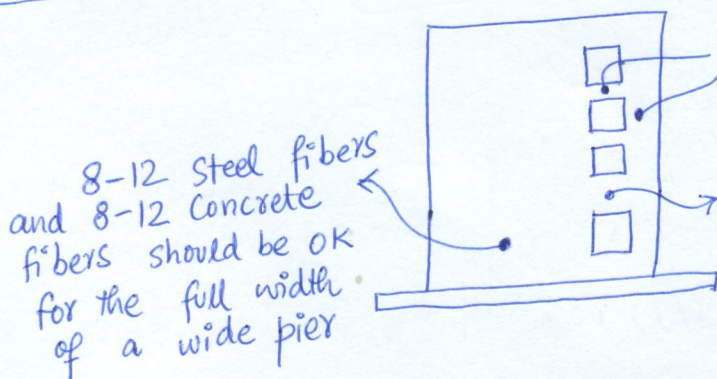 8-12 Steel fibers
and 8-12 Concrete
fibers should be OK
for the full width
of a wide pier